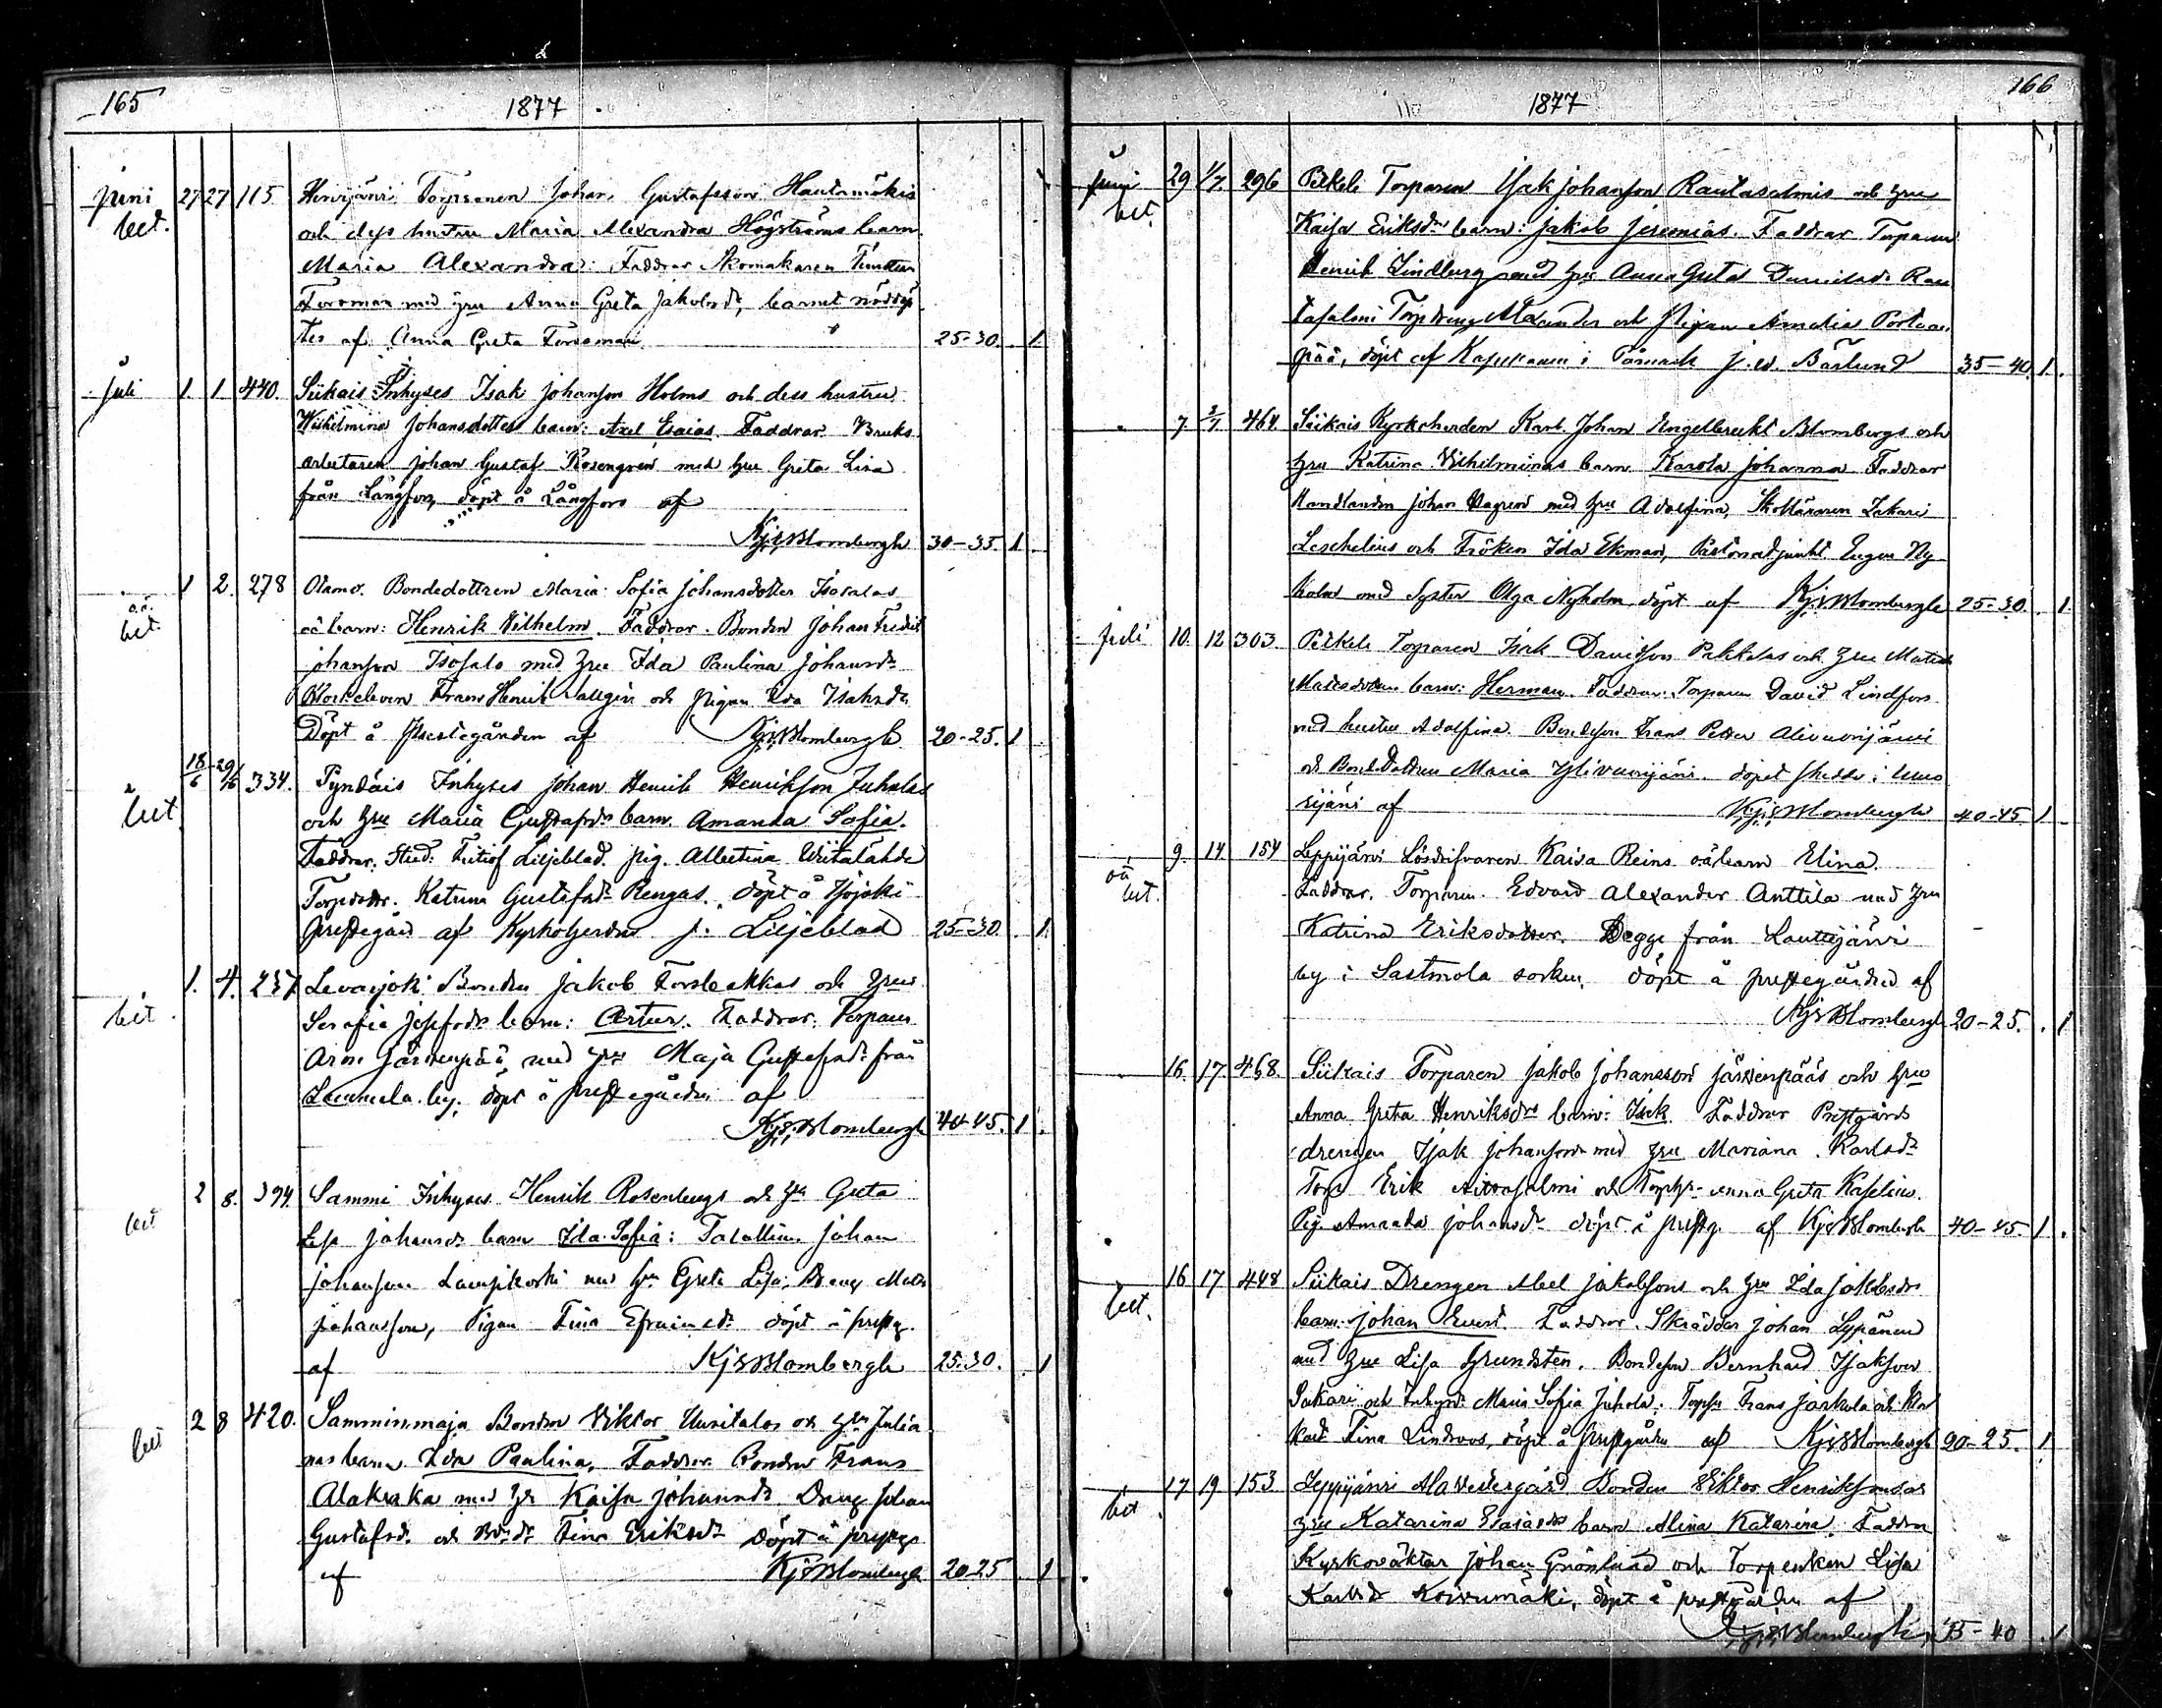 165
1877
juni 27 27 115 Hirvijärvi Torparen Johan Gustafsson Hautamäkis
bet. och dess hustru Maria Alexandra Högströms barn
Maria Alexandra: Faddrar Skomakaren
Forsman med hru Anna Greta Jakobsdr, barnet nöddöp
tes af Anna Greta Forsman 25-30. 1.
juli 1. 1 440. Siikais Inhyses Isak Johansson Holms och dess hustru
Wilhelmina Johansdotters barn: Axel Esaias. Faddrar Bruks
arbetaren Johan Gustaf Rosengren med hru Greta Lisa
från Långfors, döpt å Långfors af
KJEBlombergh 30-35. 1.
1 2. 278 Otamo. Bondedottren Maria Sofia Johansdotter Isosalos
oä. bet. oä barn: Henrik Wilhelm. Faddrar. Bonden Johan Fredrik
Johansson Isosalo med hru Ida Paulina Johansdr
Frans Henrik och pigan Ida Isaksdr
Döpt å Prestegården af KJEBlombergh 20-25. 1
18/6 29/6 334. Inhyses Johan Henrik Henriksson Juholas
bet. och hru Maria Gustafsdrs barn. Amanda Sofia.
Faddrar. Stud: Fritiof Liljeblad. pig. Albertina Wiitalähde
Torpdottr. Katrina Gustafsdr Rengas. döpt å
prestegård af Kyrkoherden J. Liljeblad 25-30. 1.
1. 4. 237. Levasjoki Bonden Jakob Forsbackas och hrus
bet. Serafia Josefsdrs barn: Artur. Faddrar: Torparen
Järvenpää, med hru Maja Gustafsdr från
Lammela by. döpt å prestegården af
KJEBlombergh 40-45. 1.
2 8. 394. Sammi Inhyses Henrik Rosenbergs och hru Greta
bet Lisa Johansdrs barn Ida Sofia: Johan
Johansson Lampikoski med hru Greta Lisa: Dreng Mats
Johansson, Pigan Fina Efraimsdr döpt å prestg.
af KJEBlombergh 25-30. 1
2 8 420. Samminmaja Bonden Viktor Uusitalos och hru Julia
bet nas barn Ida Paulina, Faddrar Bonden Frans
med hr Kaisa Johansdr Dreng Johan
Gustafsd. och Bdr dr Fina Eriksdr Döpt å prestg
af KJEBlombergh 20-25 1
166
1877
juni 29 1/7. 296 Pitkele Torparen Isak Johansson Rautasalmis och hru
bet. Kaisa Eriksdrs barn: Jakob Jeremias. Faddrar Torparen
Henrik Lindberg med hru Anna Greta Danielsdr Rau
tasalmi Torpdreng Alexander och pigan Amelia
pää, döpt af Kapellanen i Påmark J. W. Bärlund 35-40. 1.
7 464. Siikais Kyrkoherden Karl Johan Engelbrekt Blomberghs och
hru Katrina Wilhelminas barn Karola Johanna Faddrar
Handlanden Johan Wagren med hru Adolfina, Zakari
Leschelius och Fröken Ida Ekman, Pastorsadjunkt Ny
holm med Syster Olga Nyholm döpt af KJEBlombergh 25-30. 1.
juli 10. 12 303. Pitkele Torparen Isak Davidsson Pakkalas och hru Matilda
Matsdotters barn: Herman. Faddrar: Torparen David Lindfors
med hustru Adolfina. Bondeson Frans Petter
och Bondedottren Maria döpet skedde i
järvi af KJEBlombergh 40-45. 1
9. 14 154 Leppijärvi Lösdrifvaren Kaisa Reins oä barn Elina.
oä bet. Faddrar. Torparen Edvard Alexander Anttila med hru
Katrina Eriksdotter. Begge från Lauttijärvi
by i Sastmola socken, döpt å prestegården af
KJEBlombergh 20-25. 1
16. 17. 468. Siikais Torparen Jakob Johansson Järvenpääs och hru
Anna Greta Henriksdrs barn: Isak. Faddrar Prestgårds
drengen Isak Johansson med hru Mariana. Karlsdr
Torp Erik och Anna Greta
Pig. Amanda Johansdr döpt å prestg af KJEBlombergh 40-45. 1.
16 17 448 Siikais Drengen Abel Jakobssons och hru Ida Jakobsdrs
bet. barn: Johan Evert. Faddrar. Skräddar Johan Lypänen
med hru Lisa Grundsten. Bondeson Bernhard Isaksson
Sakari och Maria Sofia Juhola: Frans Jaskola
Fina Lindroos, döpt å prestgården af KJEBlombergh 20-25. 1
17 19 153 Leppijärvi Alavestergård Bonden Viktor Henrikssons och
bet hru Katarina Esaiasdrs barn Alina Katarina. Faddrar
Kyrkoväktar Johan Grönlund och Torpenkan Lisa
Karlsdr Koivumäki, döpt å prestgården af
KJEBlombergh 35-40 1